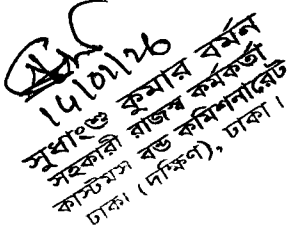 14/01/26
সুধাংশু কুমার বর্মন
সহকারী রাজস্ব কর্মকর্তা
কাস্টমস বন্ড কমিশনারেট
ঢাকা (দক্ষিণ), ঢাকা।